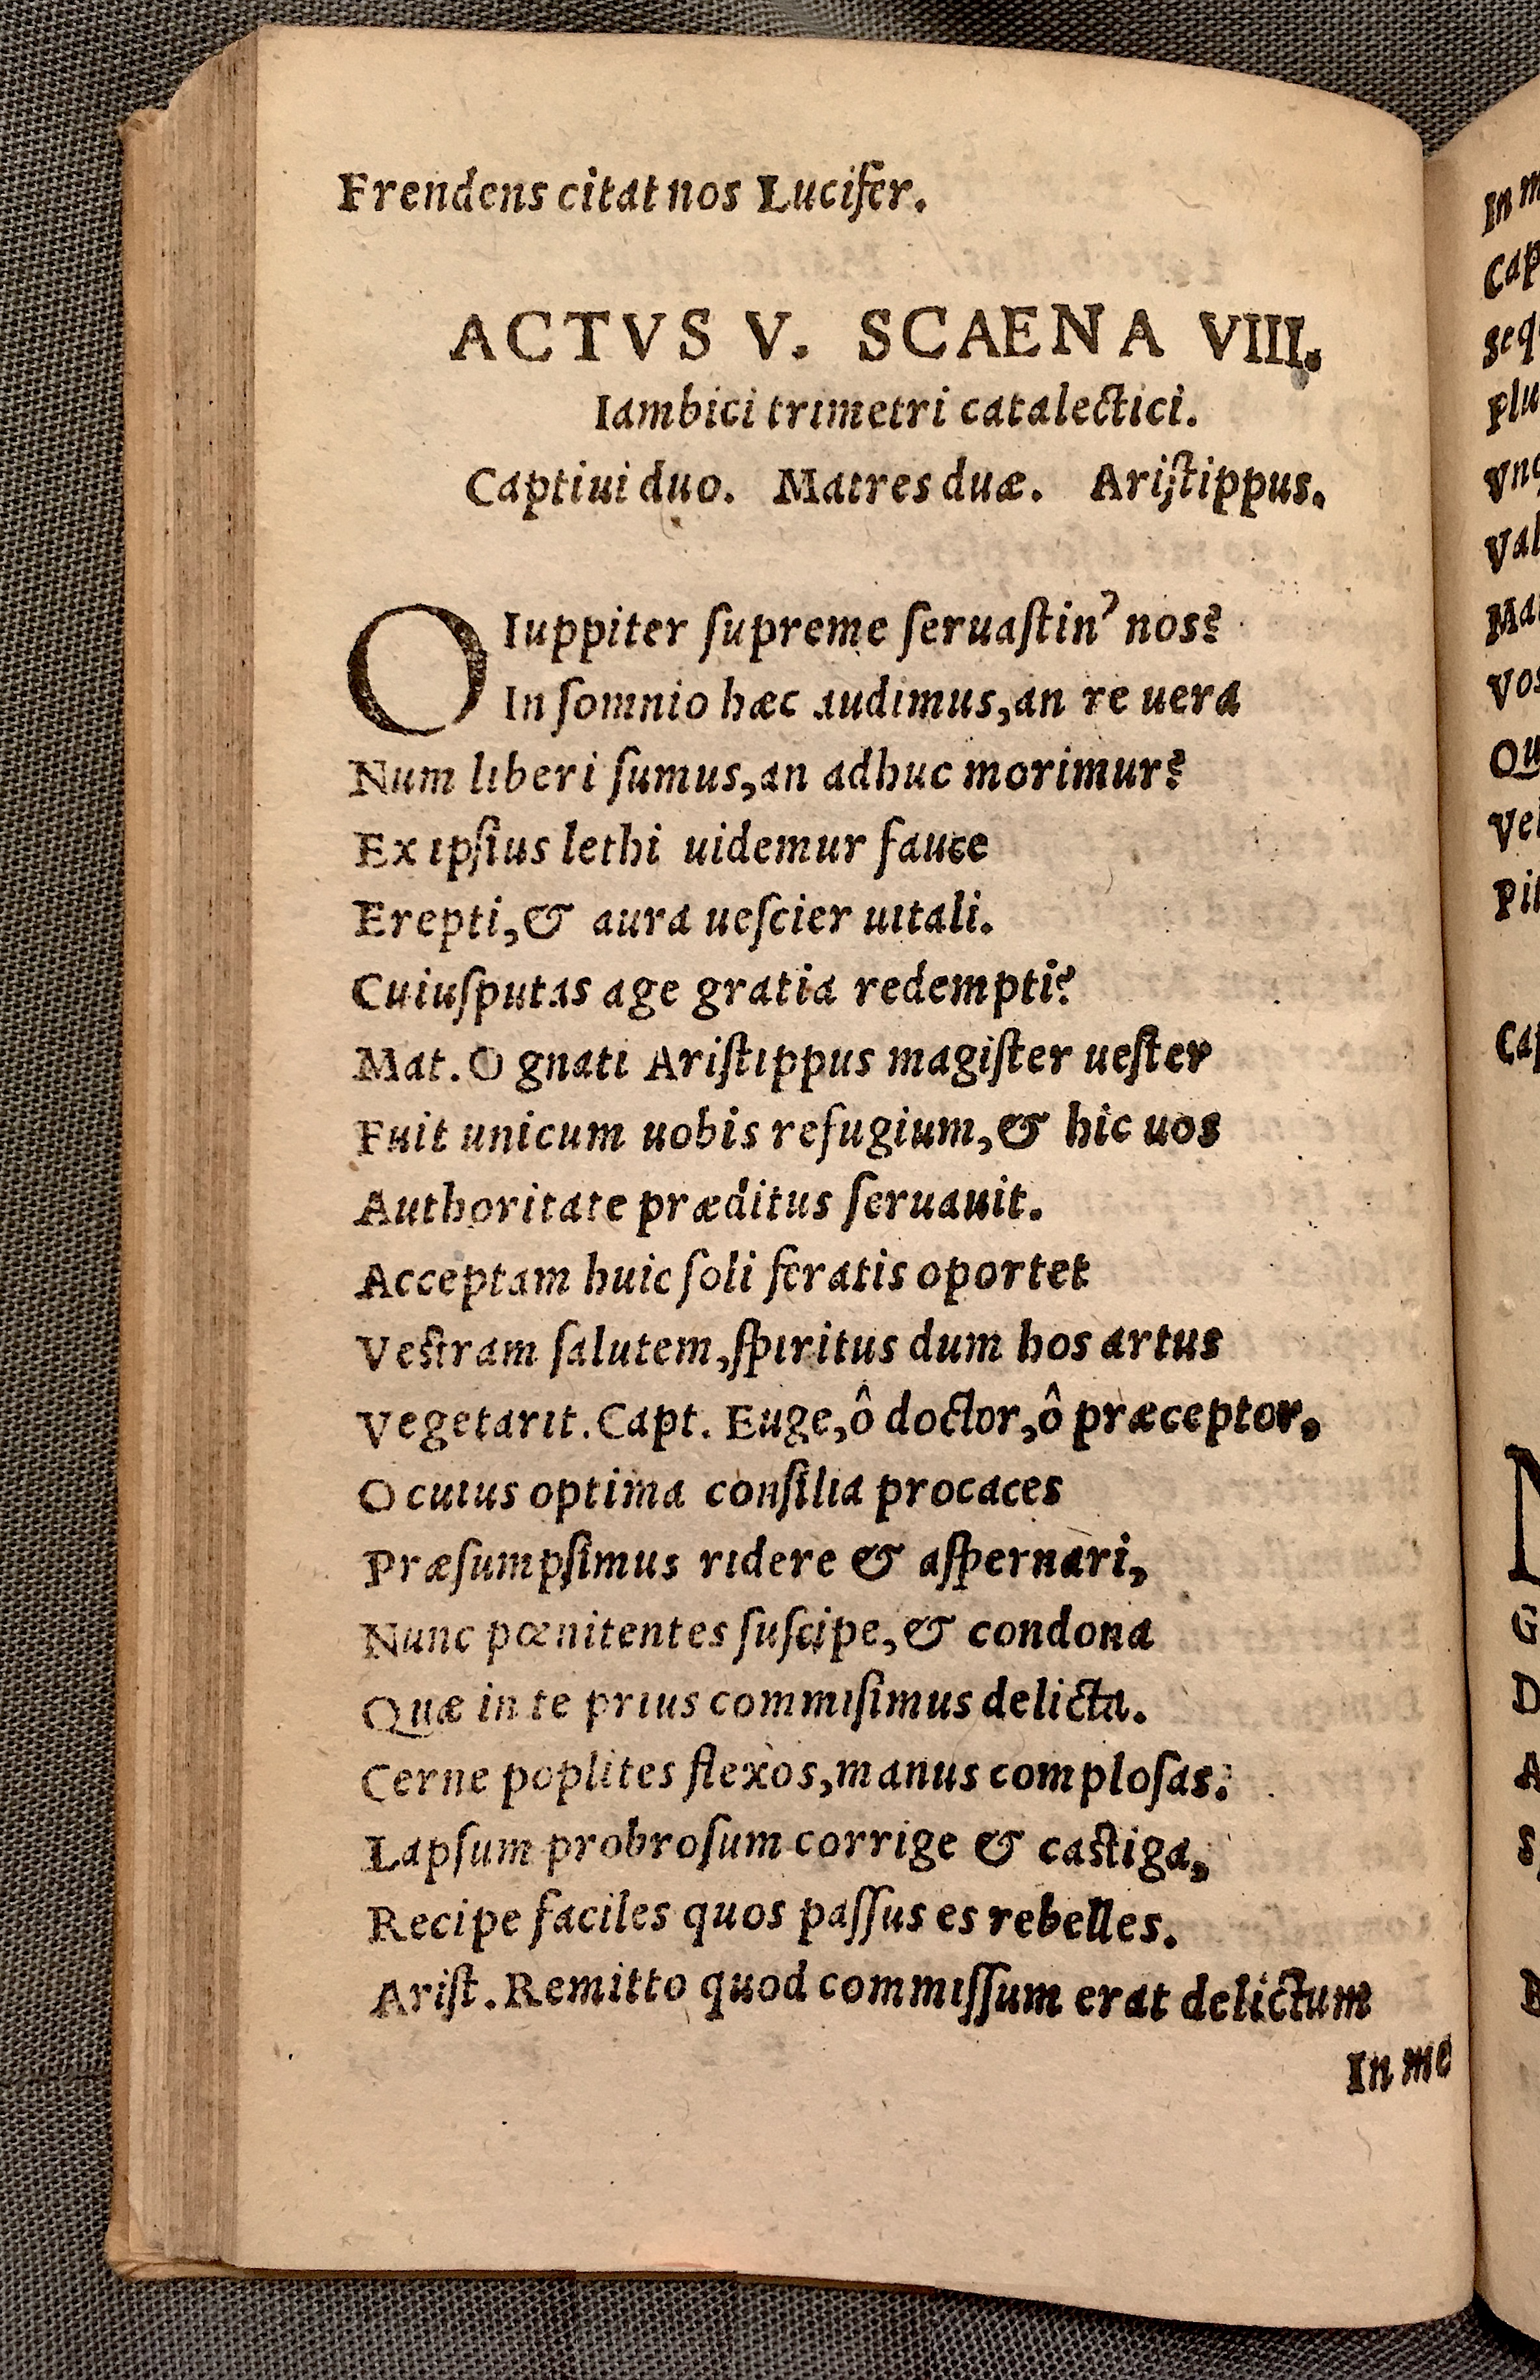 Frendens citat nos Lucifer.
ACTVS V. SCAENA VIII.
Iambici trimetri catalectici.
Captiui duo. Matres duæ. Ariſtippus.
O Iuppiter ſupreme ſeruaſtin' nos?
In ſomnio hæc audimus, an re uera
Num liberi ſumus, an adhuc morimur?
Ex ipſius lethi uidemur fauce
Erepti, & aura ueſcier uitali.
Cuiuſputas age gratia redempti?
Mat. O gnati Ariſtippus magiſter ueſter
Fuit unicum uobis refugium, & hic uos
Authoritate præditus ſeruauit.
Acceptam huic ſoli feratis oportet
Veſtram ſalutem, ſpiritus dum hos artus
Vegetarit. Capt. Euge, ô doctor, ô præceptor,
O cuius optima conſilia procaces
Præſumpſimus ridere & aſpernari,
Nunc pœnitentes ſuſcipe, & condona
Quæ in te prius commiſimus delicta.
Cerne poplites flexos, manus comploſas:
Lapſum probroſum corrige & caſtiga,
Recipe faciles quos paſſus es rebelles.
Ariſt. Remitto quod commiſſum erat delictum
In me
In m
Cap
Seq
Plu
Vnq
Val
Ma
Vos
Qu
Vel
Pit
Cap
N
G
D
A
S